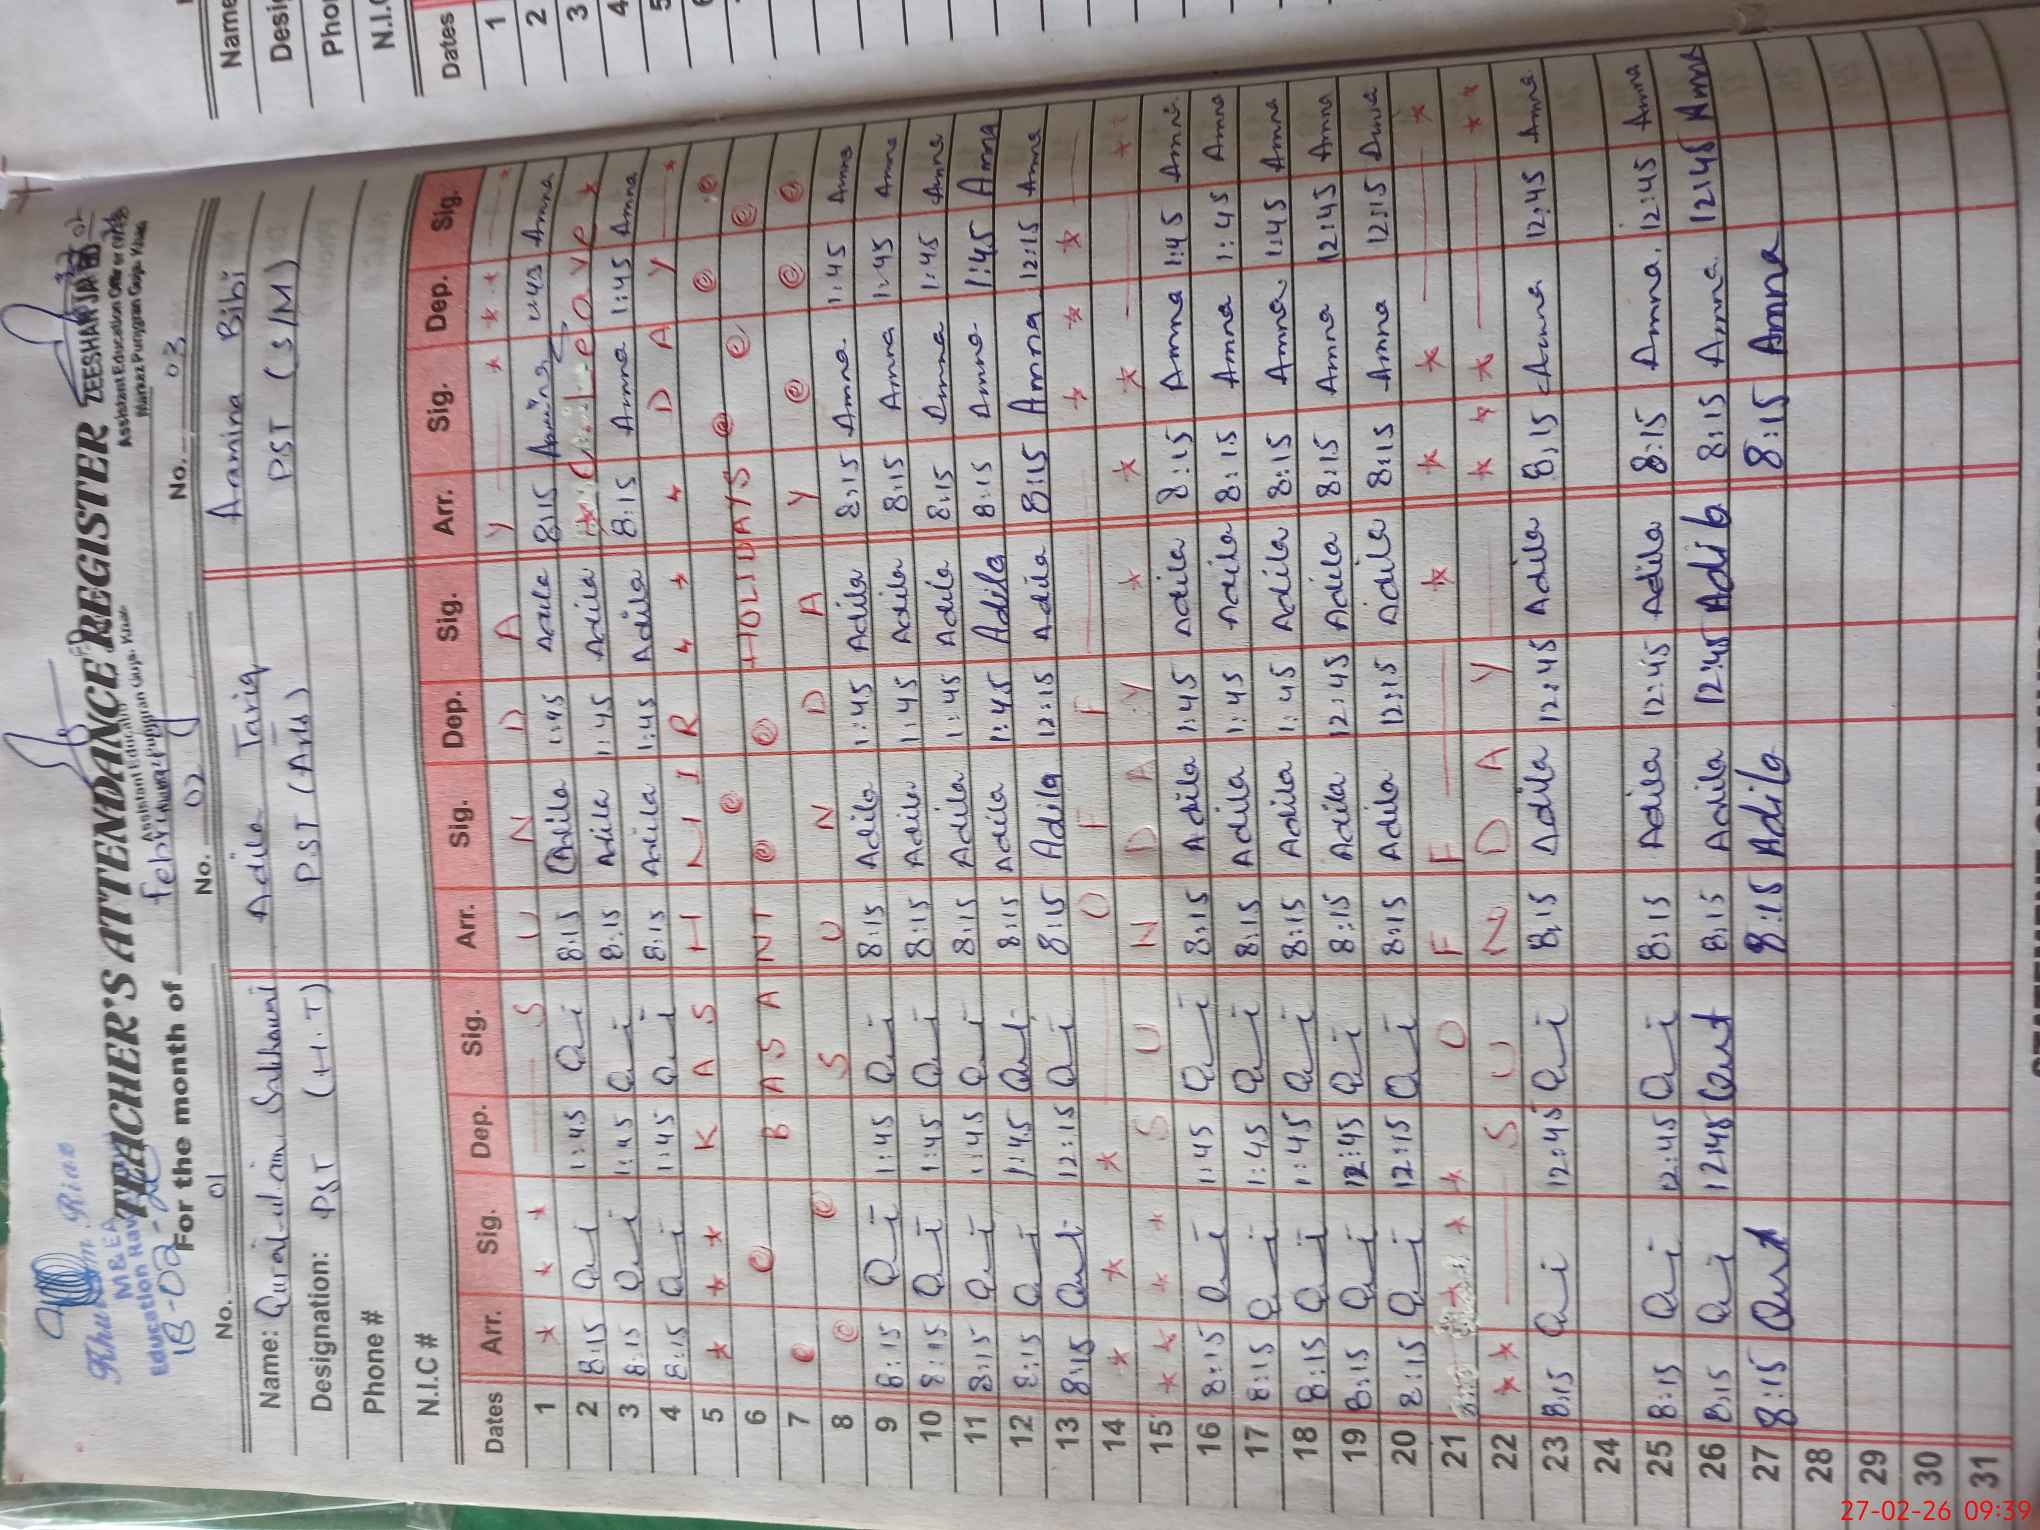 TEACHER'S ATTENDANCE REGISTER
ZEESHAN
Assistant Education Officer
Markaz Pungran Guja Khan
M&EA
18-02-26
For the month of february
No. 01 No. 02 No. 03
Name: Adila Tariq Aamina Bibi
Designation: PST (H.T) PST (Arts) PST (S/M)
Phone #
N.I.C #
Dates Arr. Sig. Dep. Sig. Arr. Sig. Dep. Sig. Arr. Sig. Dep. Sig.
1 * * * S U N D A Y * * * *
2 8:15 1:45 8:15 Adila 1:45 Adila 8:15 Amna 1:45 Amna
3 8:15 1:45 8:15 Adila 1:45 Adila Leave *
4 8:15 1:45 8:15 Adila 1:45 Adila 8:15 Amna 1:45 Amna
5 * * * K A S H M I R * * * D A Y *
6 @ B A S A N T @ @ HOLIDAYS @ @ @ @
7 @ @
8 @ @ S U N D A Y @ @ @
9 8:15 1:45 8:15 Adila 1:45 Adila 8:15 Amna 1:45 Amna
10 8:15 1:45 8:15 Adila 1:45 Adila 8:15 Amna 1:45 Amna
11 8:15 1:45 8:15 Adila 1:45 Adila 8:15 Amna 1:45 Amna
12 8:15 1:45 8:15 Adila 1:45 Adila 8:15 Amna 1:45 Amna
13 8:15 12:15 8:15 Adila 12:15 Adila 8:15 Amna 12:15 Amna
14 * * * O F F * * *
15 * * * * S U N D A Y * * * *
16 8:15 1:45 8:15 Adila 1:45 Adila 8:15 Amna 1:45 Amna
17 8:15 1:45 8:15 Adila 1:45 Adila 8:15 Amna 1:45 Amna
18 8:15 1:45 8:15 Adila 1:45 Adila 8:15 Amna 1:45 Amna
19 8:15 12:45 8:15 Adila 12:45 Adila 8:15 Amna 12:45 Amna
20 8:15 12:15 8:15 Adila 12:15 Adila 8:15 Amna 12:15 Amna
21 * * * O F F * * * *
22 * * S U N D A Y * * * * *
23 8:15 12:45 8:15 Adila 12:45 Adila 8:15 Amna 12:45 Amna
24
25 8:15 12:45 8:15 Adila 12:45 Adila 8:15 Amna 12:45 Amna
26 8:15 12:45 8:15 Adila 12:45 Adila 8:15 Amna 12:45 Amna
27 8:15 8:15 Adila 8:15 Amna
28
29
30
31
Name
Desi
Pho
N.I.C
Dates
1
2
3
4
5
27-02-26 09:39